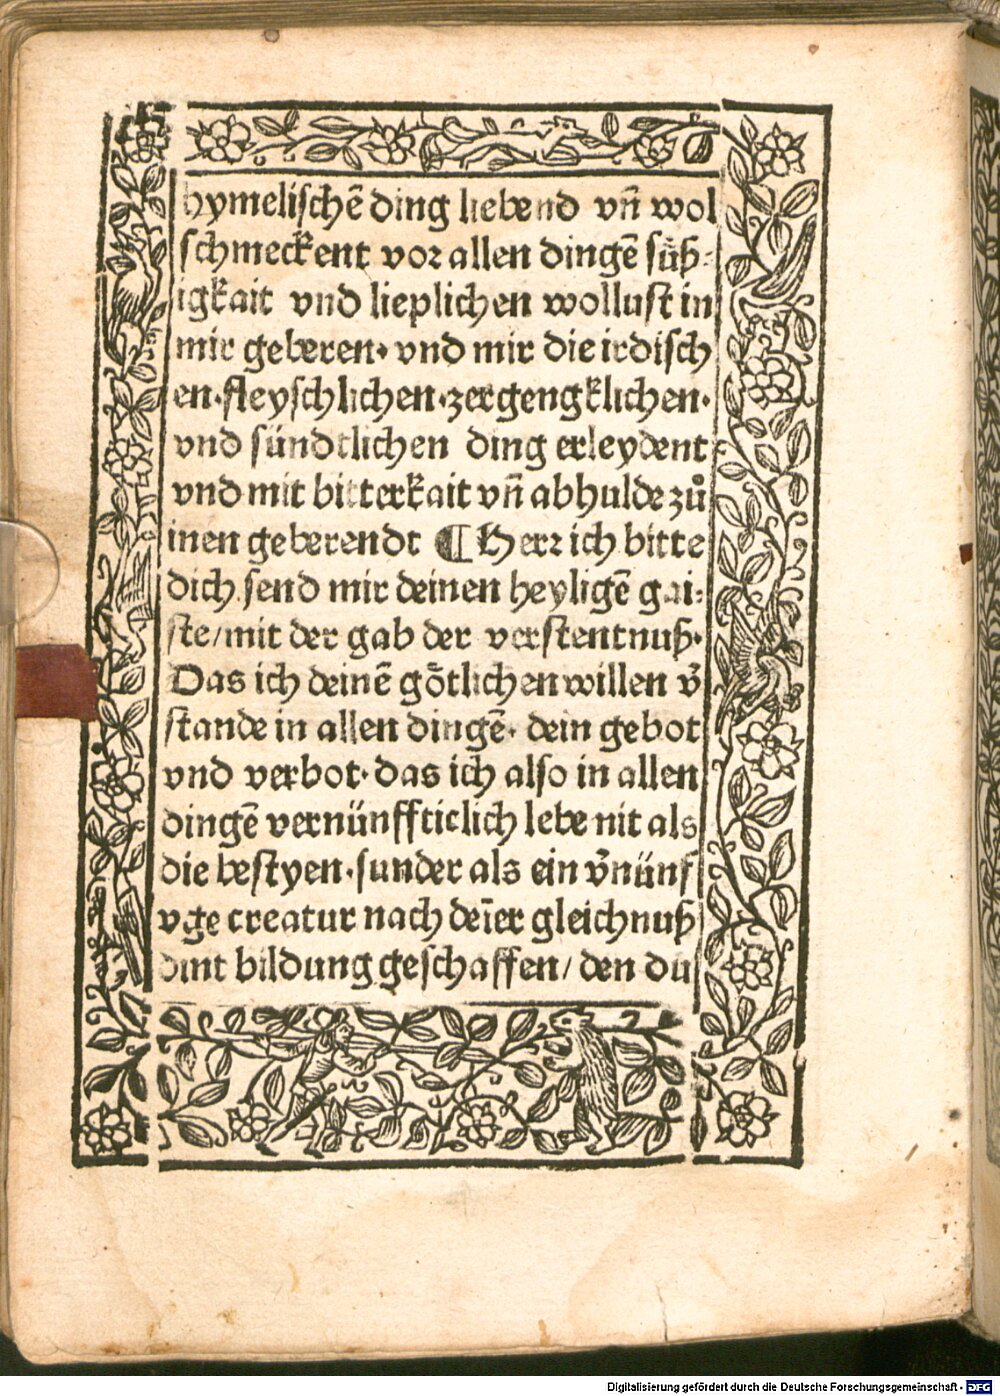 hymelischē ding liebend vn̄ wol
schmeckent vor allen dingē süß-
igkait vnd lieplichen wollust in
mir geberen· vnd mir die irdisch
en·fleyschlichen·zergengklichen·
vnd sündtlichen ding erleydent
vnd mit bitterkait vn̄ abhulde zů
inen geberendt ¶ Herr ich bitte
dich send mir deinen heyligē gai-
ste/mit der gab der verstentnuß·
Das ich deinē götlichen willen v̄
stande in allen dingē· dein gebot
vnd verbot· das ich also in allen
dingē vernünffticlich lebe nit als
die bestyen·sunder als ein v̄nünf
vge creatur nach deīer gleichnuß
vnt bildung geschaffen/ den du
Digitalisierung gefördert durch die Deutsche Forschungsgemeinschaft - DFG